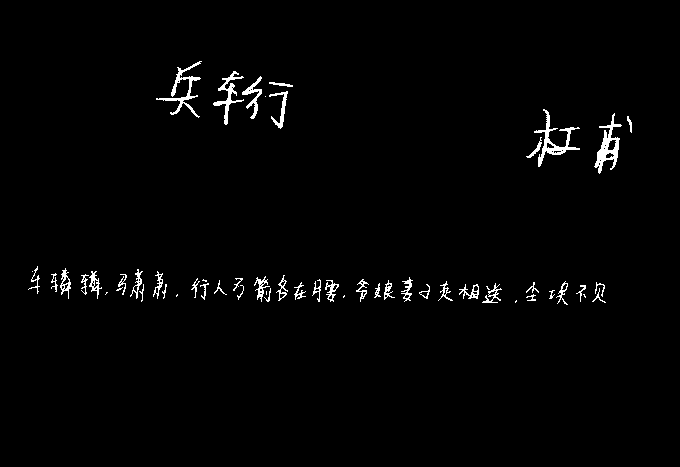 兵车行
杜甫
车辚辚,马萧萧,行人弓箭各在腰,爷娘妻子夹相送,尘埃不见